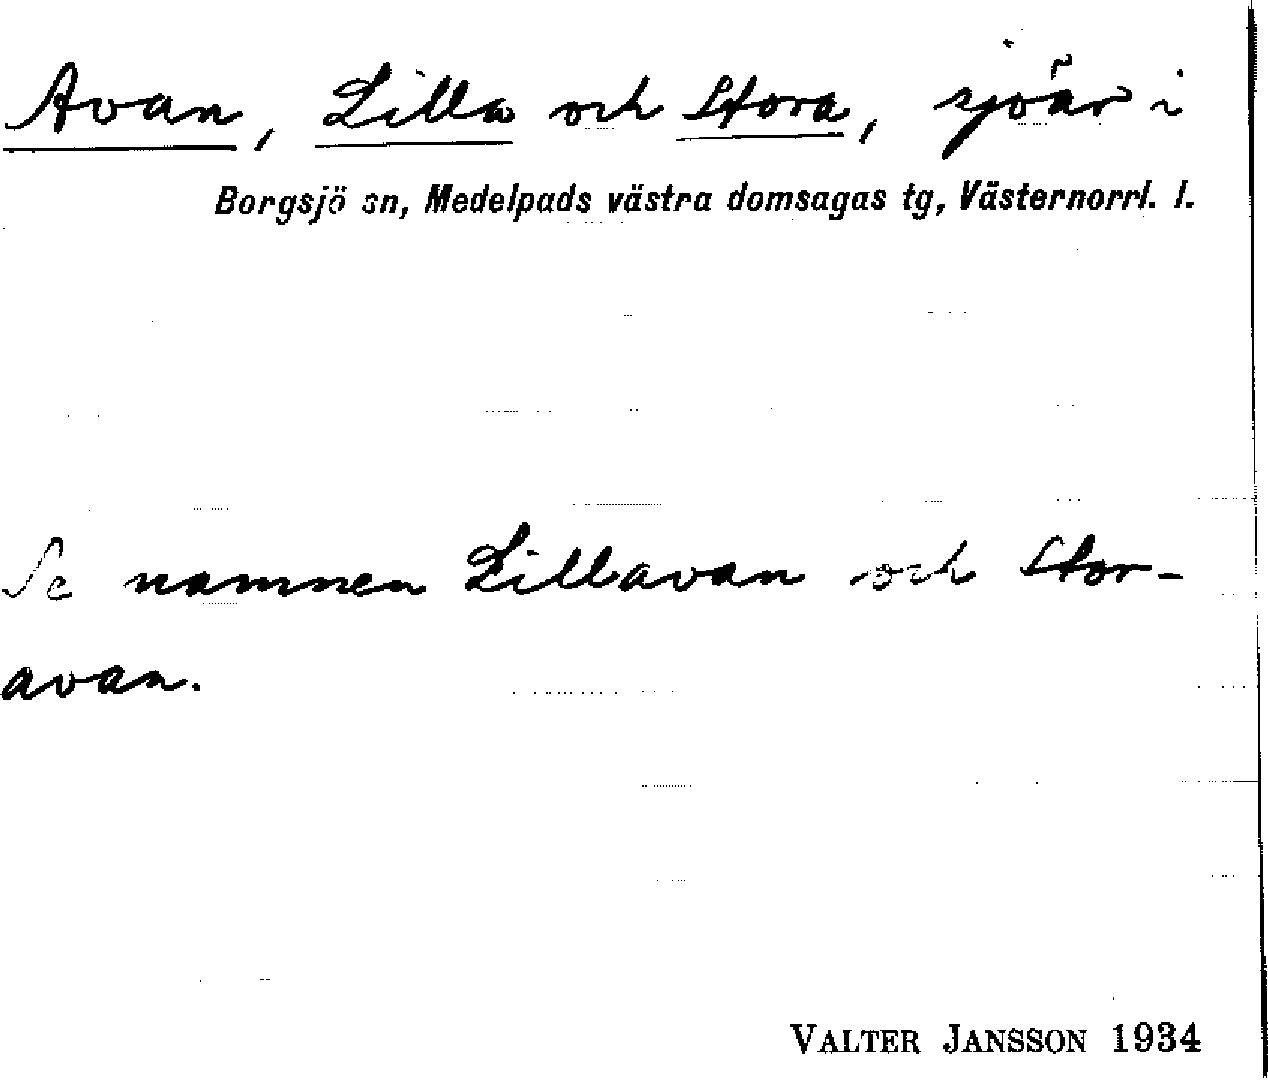 Avan, Lilla och Stora, sjöar i
Borgsjö sn, Medelpads västra domsagas tg, Västernorrl. l.
Se namnen Lillavan och Stor-
avan.
VALTER JANSSON 1934